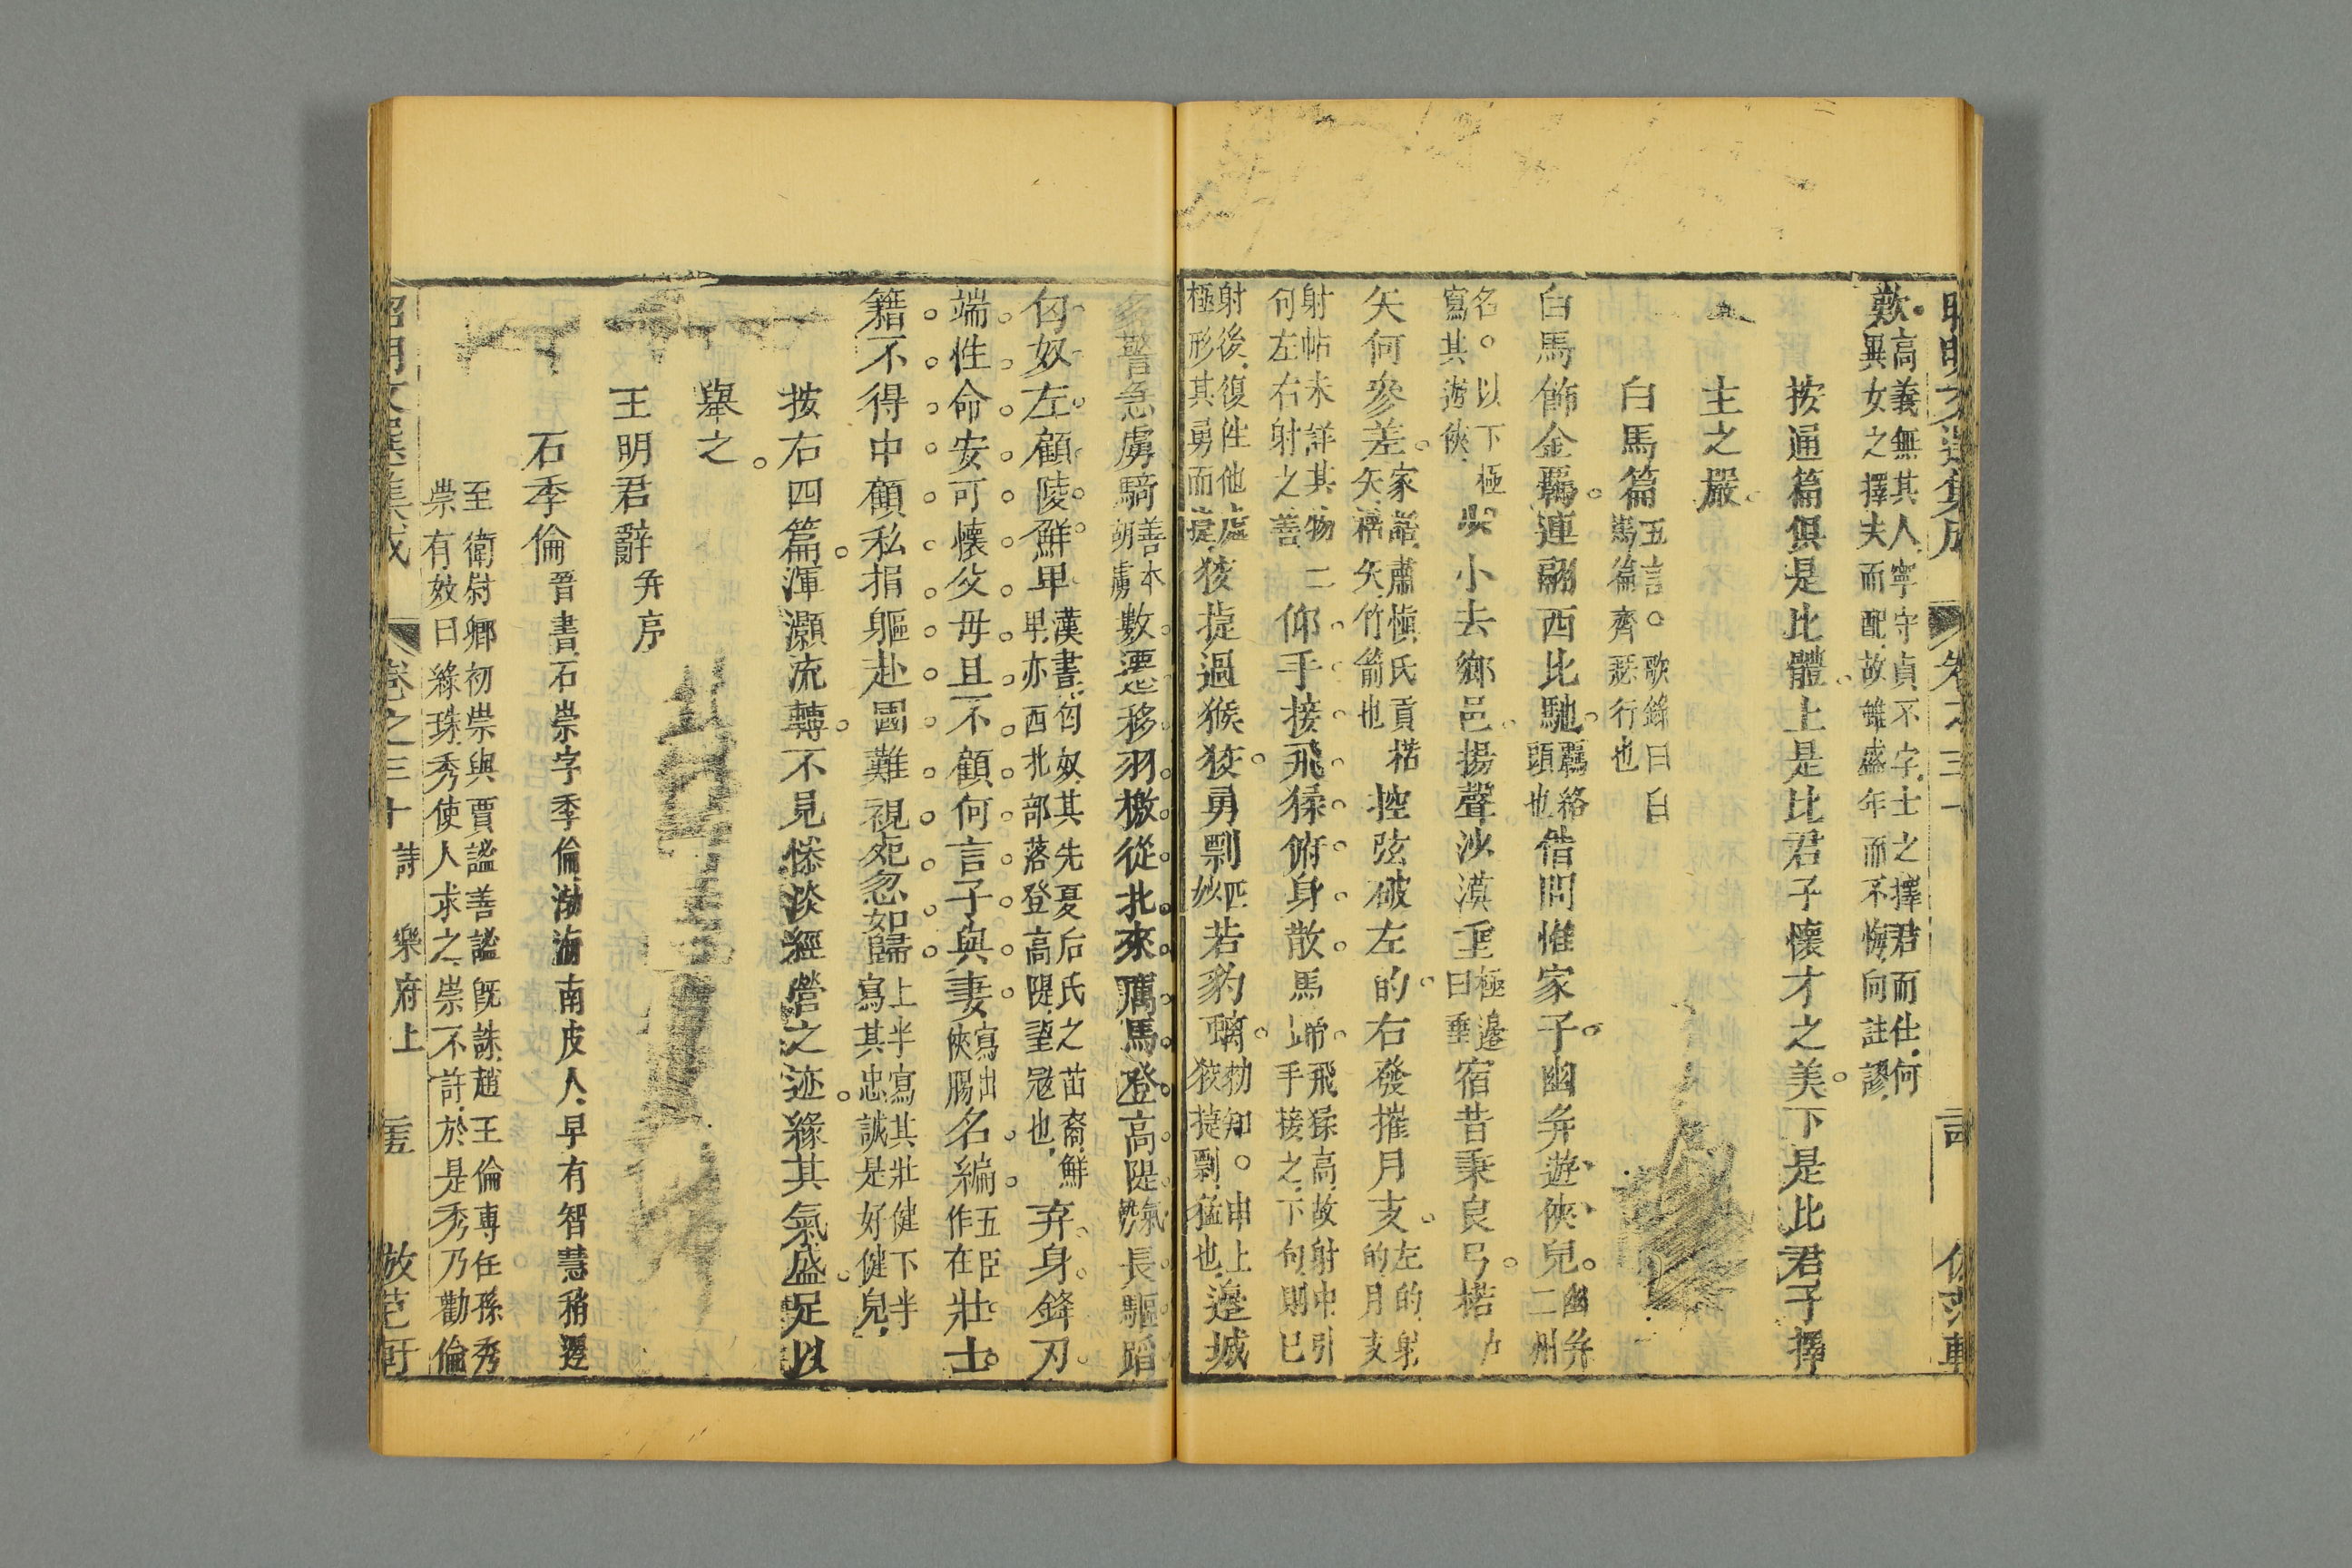 昭明文選集成 卷之三十 詩
歎高義無其人寧守貞不字士之擇君而仕何
異女之擇夫而配故雖盛年而不悔向註謬
按通篇俱是比體上是比君子懷才之美下是比君子擇
主之嚴
白馬篇五言歌錄曰白
馬篇齊瑟行也
白馬飾金羈連翩西北馳羈絡
頭也借問誰家子幽并遊俠兒幽并
二州
名以下極
寫其遊俠少小去鄉邑揚聲沙漠垂極邊
曰垂宿昔秉良弓楛
矢何參差家語肅慎氏貢楛
矢楛矢竹箭也控弦破左的右發摧月支左的射
的月支
射帖未詳其物二
句左右射之善仰手接飛猱俯身散馬蹄飛猱高故射中引
手接之下句則已
射後復性他處
極形其勇而捷狡捷過猴猿勇剽匹
妙若豹螭勑知申上
狡捷剽猛也邊城
多警急虜騎善本
胡虜數遷移羽檄從北來厲馬登高隄氣
勢長驅蹈
匈奴左顧陵鮮卑漢書匈奴其先夏后氏之苗裔鮮
卑亦西北部落登高隄望寇也弃身鋒刃
端性命安可懷父母且不顧何言子與妻寫出
俠腸名編五臣
作在壯士
籍不得中顧私捐軀赴國難視死忽如歸上半寫其壯健下半
寫其忠誠是好健兒
按右四篇渾灝流轉不見慘淡經營之迹緣其氣盛足以
舉之
王明君辭并序
石季倫晉書石崇字季倫渤海南皮人早有智慧稍遷
至衛尉卿初崇與賈謐善謐既誅趙王倫專任孫秀
崇有妓曰綠珠秀使人求之崇不許於是秀乃勸倫
昭明文選集成 卷之三十 詩 樂府上 放范軒